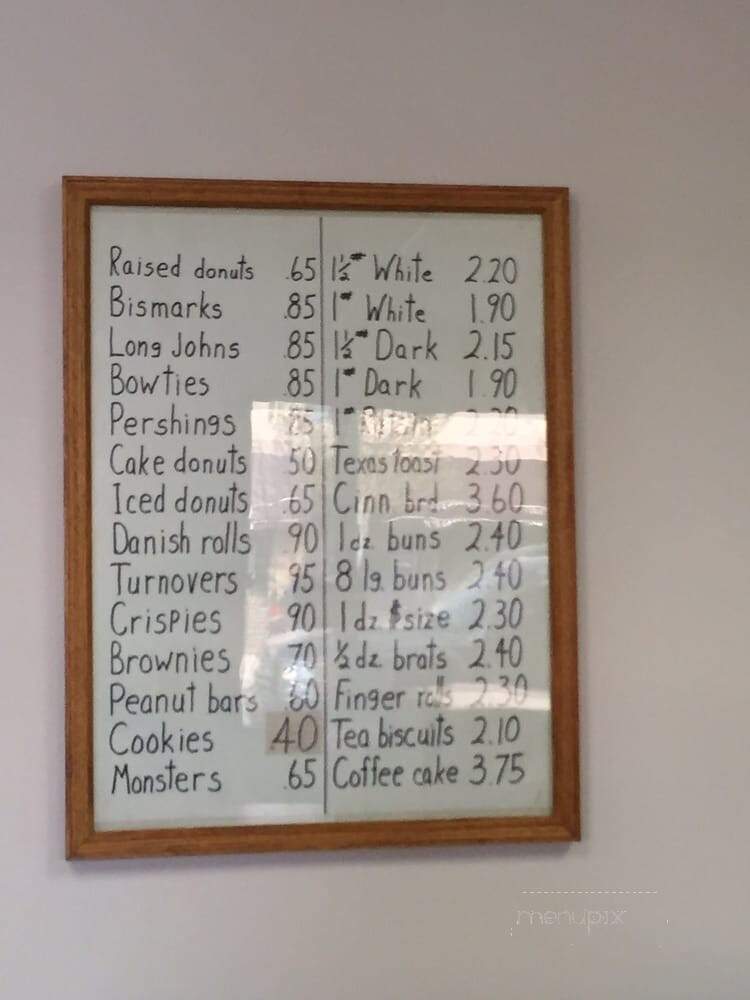 Raised donuts .65
Bismarks .85
Long Johns .85
Bowties .85
Pershings .85
Cake donuts .50
Iced donuts .65
Danish rolls .90
Turnovers .95
Crispies .90
Brownies .70
Peanut bars .60
Cookies .40
Monsters .65
1½# White 2.20
1# White 1.90
1½# Dark 2.15
1# Dark 1.90
1#
Texas toast 2.30
Cinn. brd. 3.60
1 dz. buns 2.40
8 lg. buns 2.40
1 dz. $ size 2.30
½ dz. brats 2.40
Finger rolls 2.30
Tea biscuits 2.10
Coffee cake 3.75
menupix